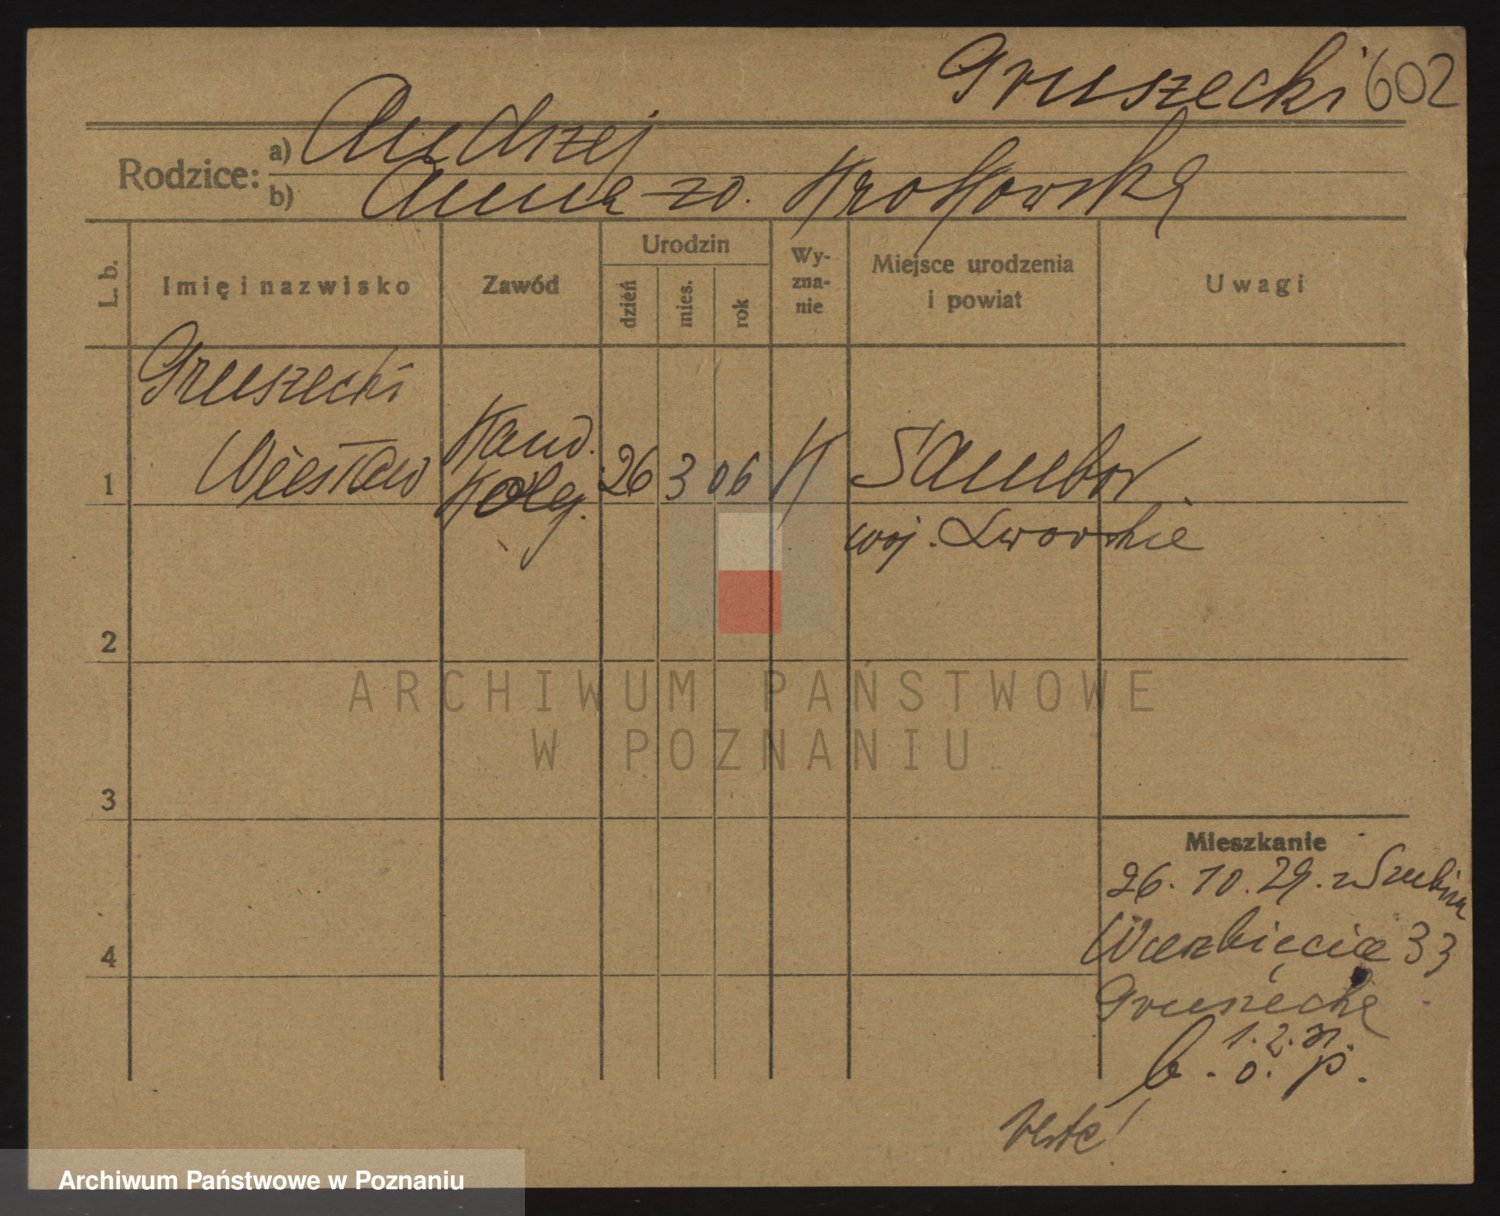 Gruszecki 602
Rodzice: a) Andrzej
b) Anna zd. Krotowska
L. b.
Imię i nazwisko
Zawód
Urodzin
dzień
mies.
rok
Wy-
zna-
nie
Miejsce urodzenia
i powiat
Uwagi
Gruszecki
1 Wiesław
Hand.
Koleg.
26 3 06 K Sambor
woj. Lwowskie
2
ARCHIWUM PAŃSTWOWE
W POZNANIU
3
Mieszkanie
26. 10. 29. z Szubina
4 Wierzbięcice 33
Gruszecka
b. o. p.
Archiwum Państwowe w Poznaniu